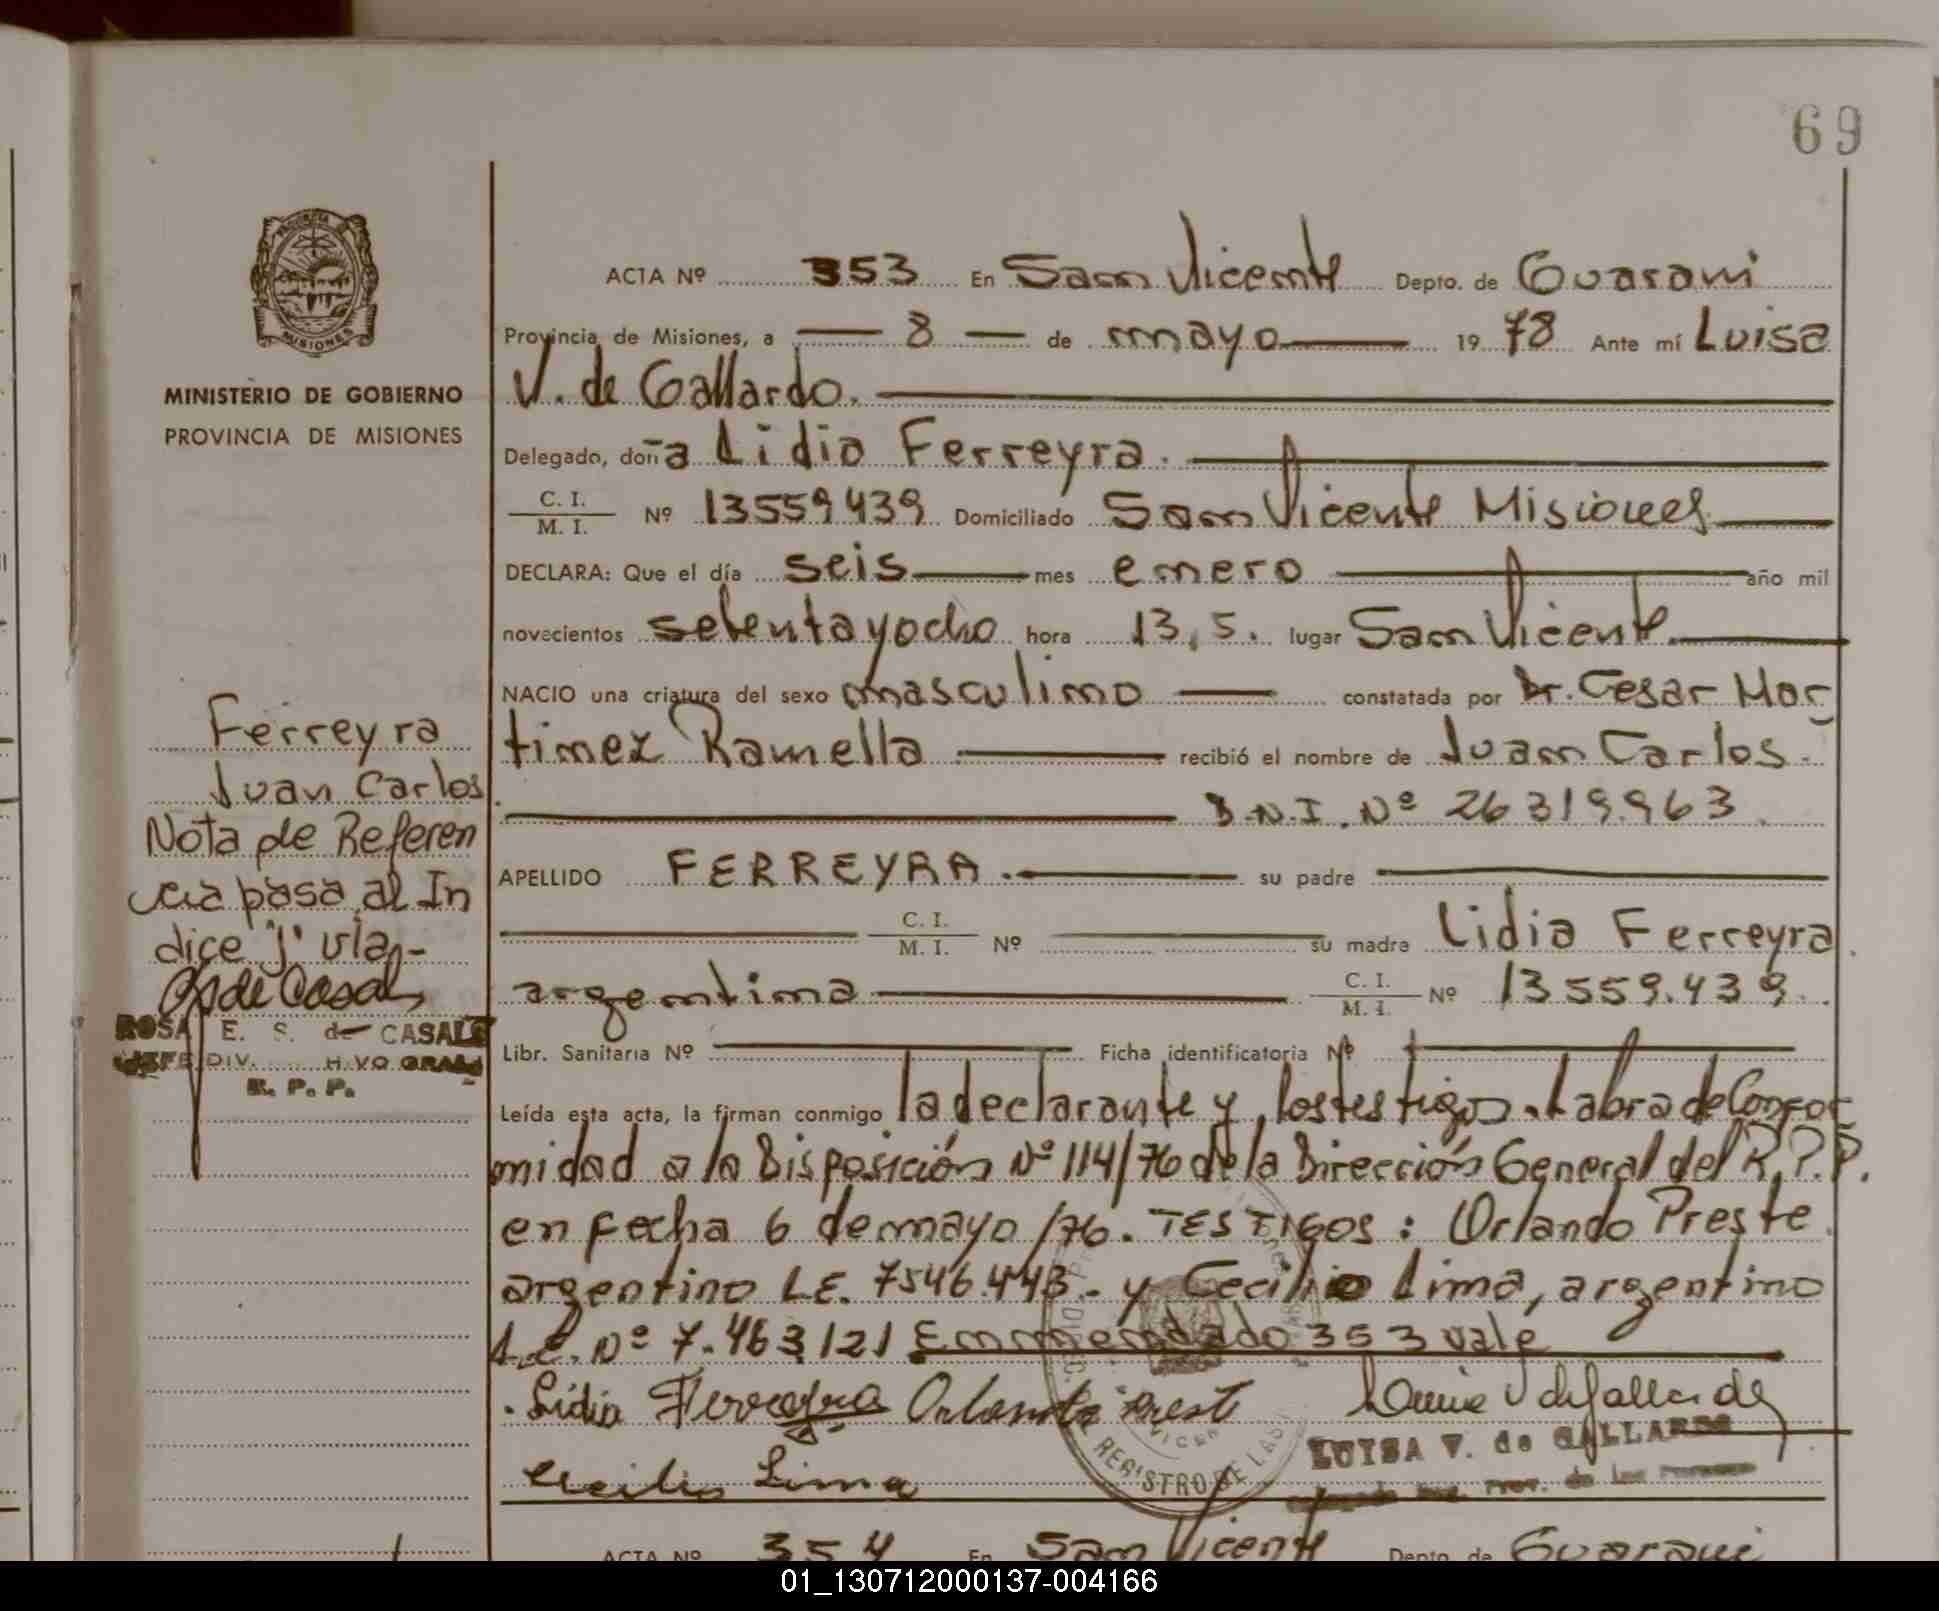 69
PROVINCIA DE
MISIONES
MINISTERIO DE GOBIERNO
PROVINCIA DE MISIONES
ACTA Nº 353 En San Vicente Depto. de Guarani
Provincia de Misiones, a 8 de mayo 1978 Ante mí Luisa
V. de Gallardo.
Delegado, doña Lidia Ferreyra.
C. I.
M. I. Nº 13559439 Domiciliado San Vicente Misiones
DECLARA: Que el día seis mes enero año mil
novecientos setentayocho hora 13,5. lugar San Vicente.
NACIO una criatura del sexo masculino constatada por Dr. Cesar Mar
tinez Ramella recibió el nombre de Juan Carlos.
D.N.I. Nº 26319.963
APELLIDO FERREYRA. su padre
C. I.
M. I. Nº su madre Lidia Ferreyra.
argentina C. I.
M. I. Nº 13559.439.
Libr. Sanitaria Nº Ficha identificatoria Nº
Leída esta acta, la firman conmigo la declarante y los testigos. Labra de Confor
midad a la Disposición Nº 114/76 de la Dirección General del R.P.P.
en fecha 6 de mayo/76. TESTIGOS: Orlando Preste
argentino L.E. 7546.443.- y Cecilio Lima, argentino
L.E. Nº 7.463121 Enmendado 353 vale
Lidia Ferreyra Orlando Preste Luisa V de Gallardo
LUISA V. de GALLARDO
Cecilio Lima
REGISTRO DE LAS
Ferreyra
Juan Carlos
Nota de Referen
cia pasa al In
dice "J" vta.-
de Casals
ROSA E. S. de CASALS
JEFE DIV. GRAL
R. P. P.
ACTA Nº 354 En San Vicente Depto. de Guarani
01_130712000137-004166